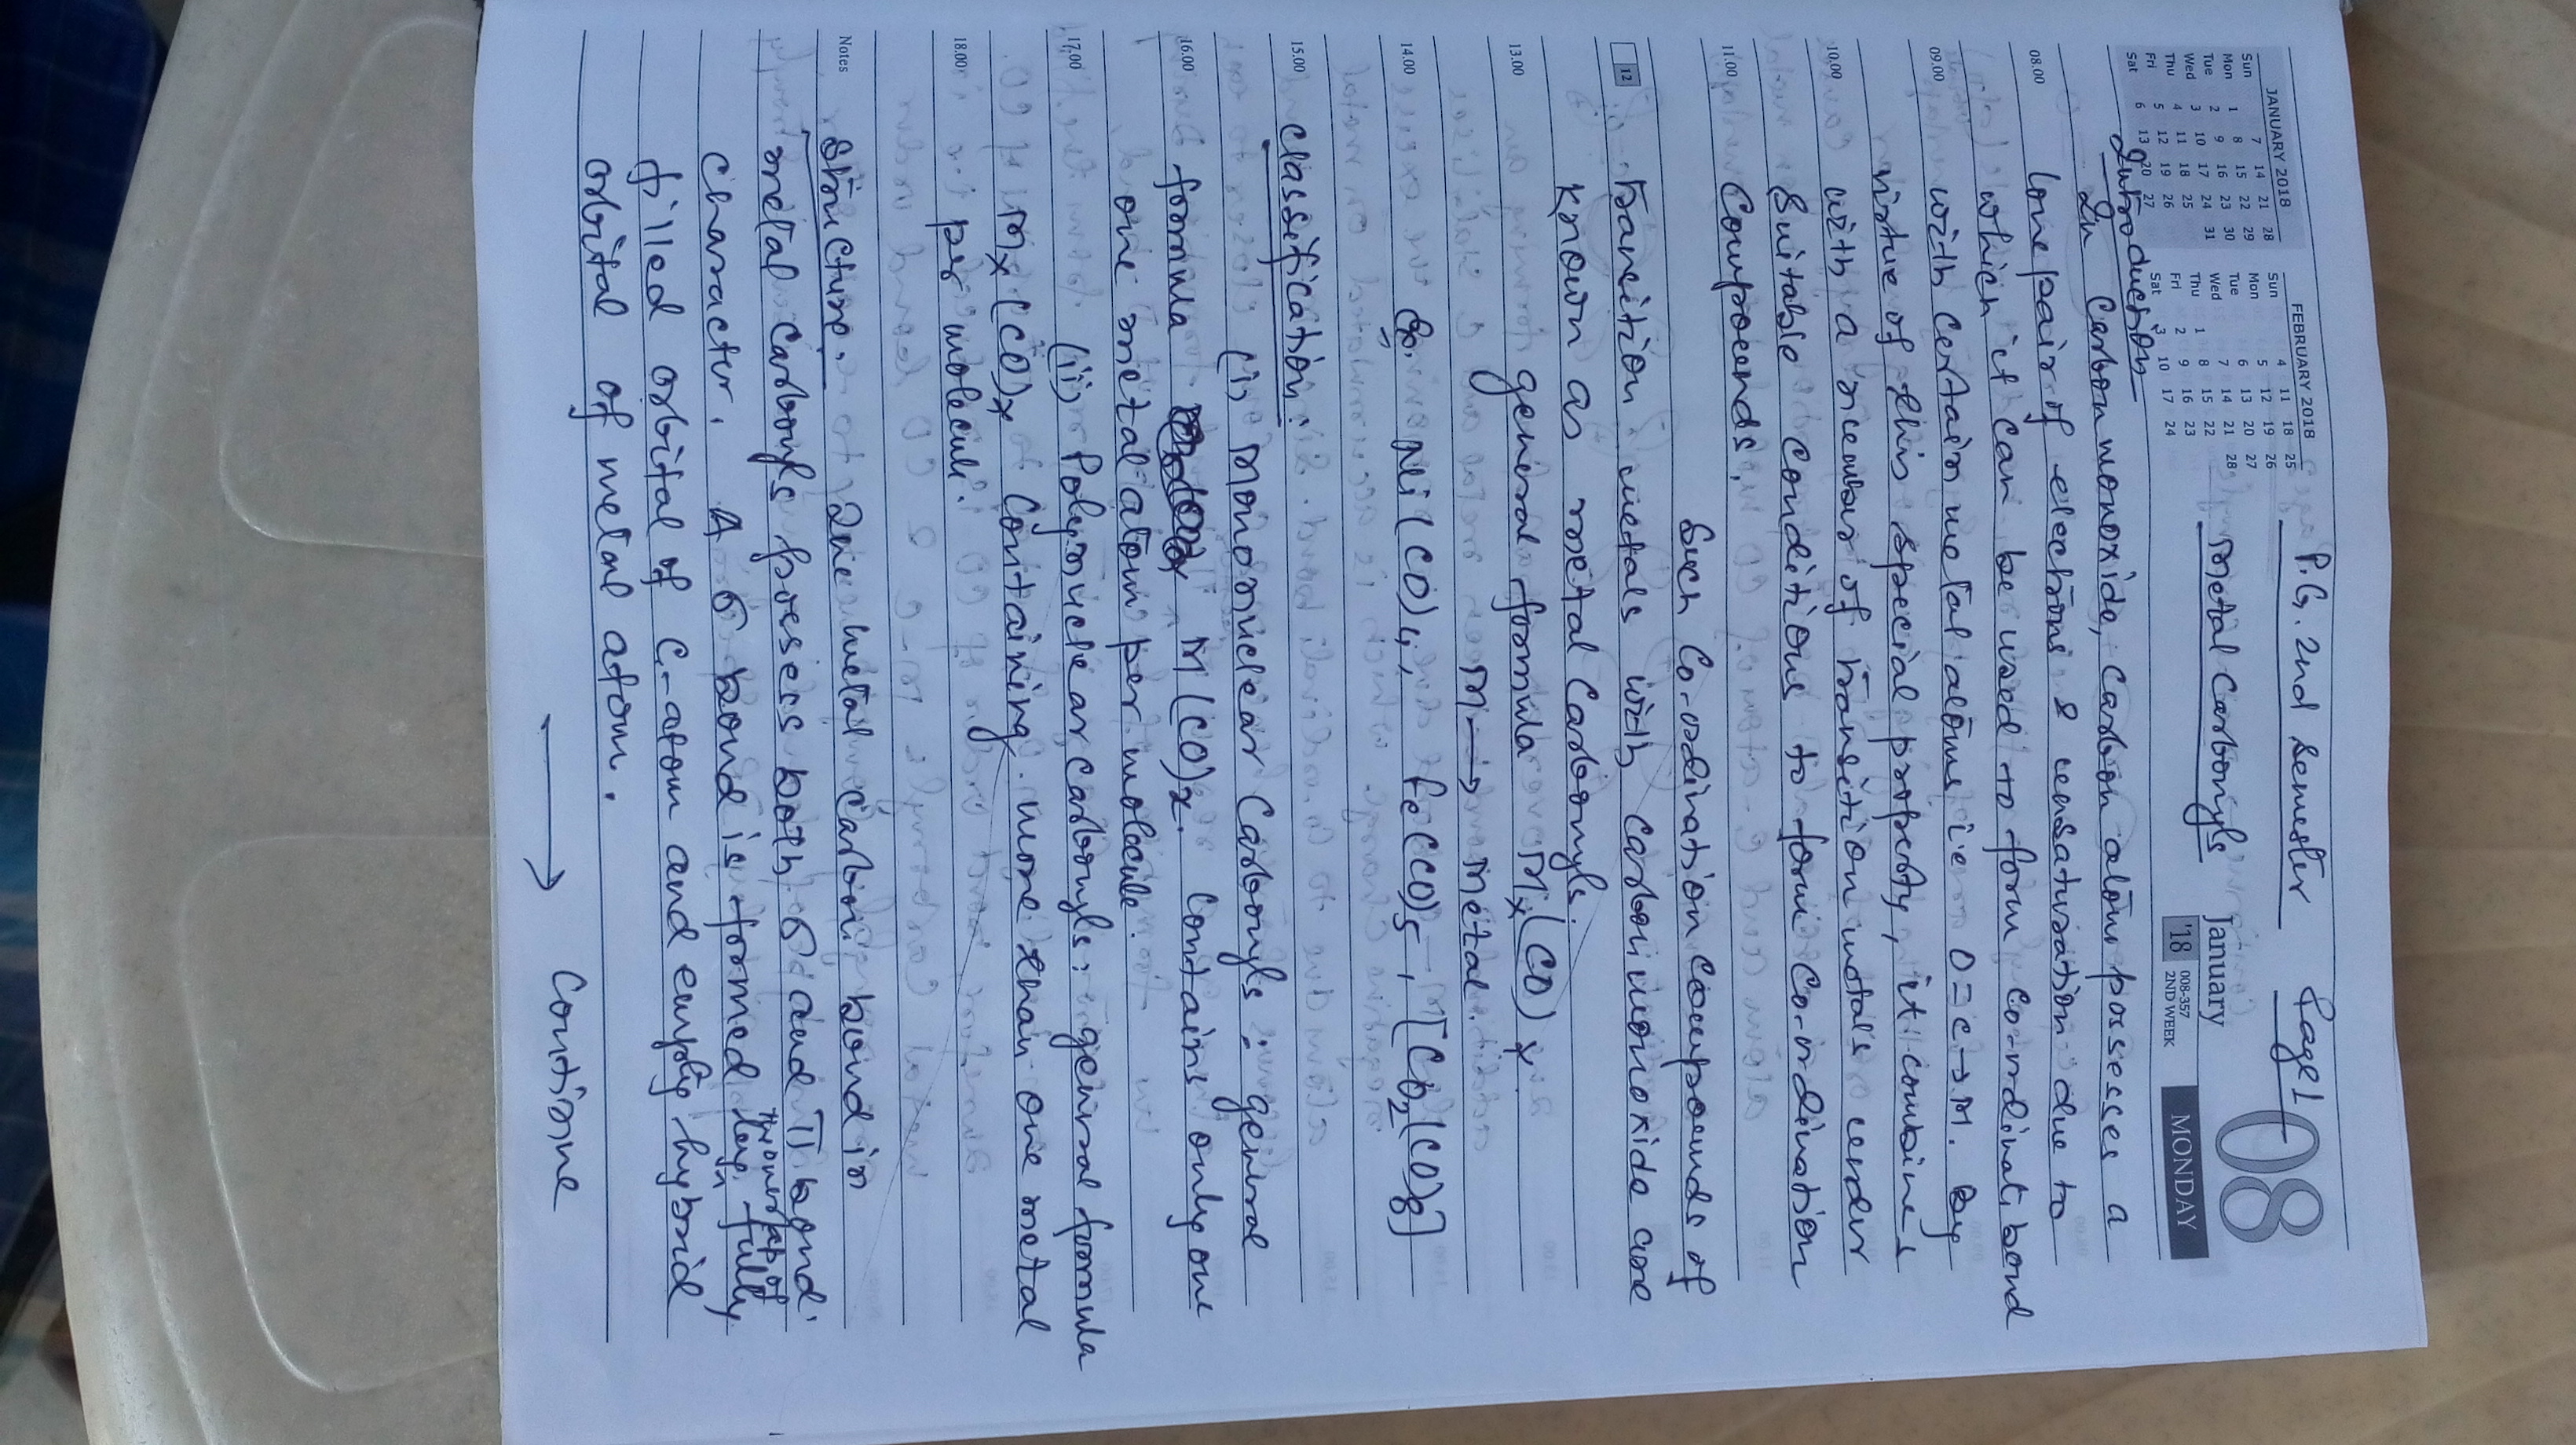 P.G. 2nd Semester Page 1
Metal Carbonyls
JANUARY 2018
Sun 7 14 21 28
Mon 1 8 15 22 29
Tue 2 9 16 23 30
Wed 3 10 17 24 31
Thu 4 11 18 25
Fri 5 12 19 26
Sat 6 13 20 27
FEBRUARY 2018
Sun 4 11 18 25
Mon 5 12 19 26
Tue 6 13 20 27
Wed 7 14 21 28
Thu 1 8 15 22
Fri 2 9 16 23
Sat 3 10 17 24
January
'18 008-357
2ND WEEK
MONDAY
08
Introduction
In Carbon monoxide, Carbon atom possesses a
08.00 lone pair of electrons & unsaturation due to
which it can be used to form co-ordinat. bond
09.00 with certain metal atoms ie O≡C→M. By
virtue of this special property, it combines
10.00 with a member of transition metals under
Suitable conditions to form Co-ordination
11.00 Compoends.
Such Co-ordination compoends of
12 transition metals with carbon monoxide are
known as metal carbonyls.
13.00 general formula Mx(CO)y
M → Metal.
14.00 Eg. Ni(CO)4, Fe(CO)5, [CO2(CO)8]
15.00 Classification:
(i) Mononuclear Carbonyls = general
16.00 formula M(CO)x. Contains only one
one metal atom per molecule.
17.00 (ii) Polynuclear carbonyls: general formula
Mx(CO)y Containing more than one metal
18.00 per molecule.
Notes Structure. The metal carbon bond in
metal carbonyls possess both σ and π bond
character. A σ bond is formed by the overlap of fully
filled orbital of C-atom and empty hybrid
orbital of metal atom.
→ Continue